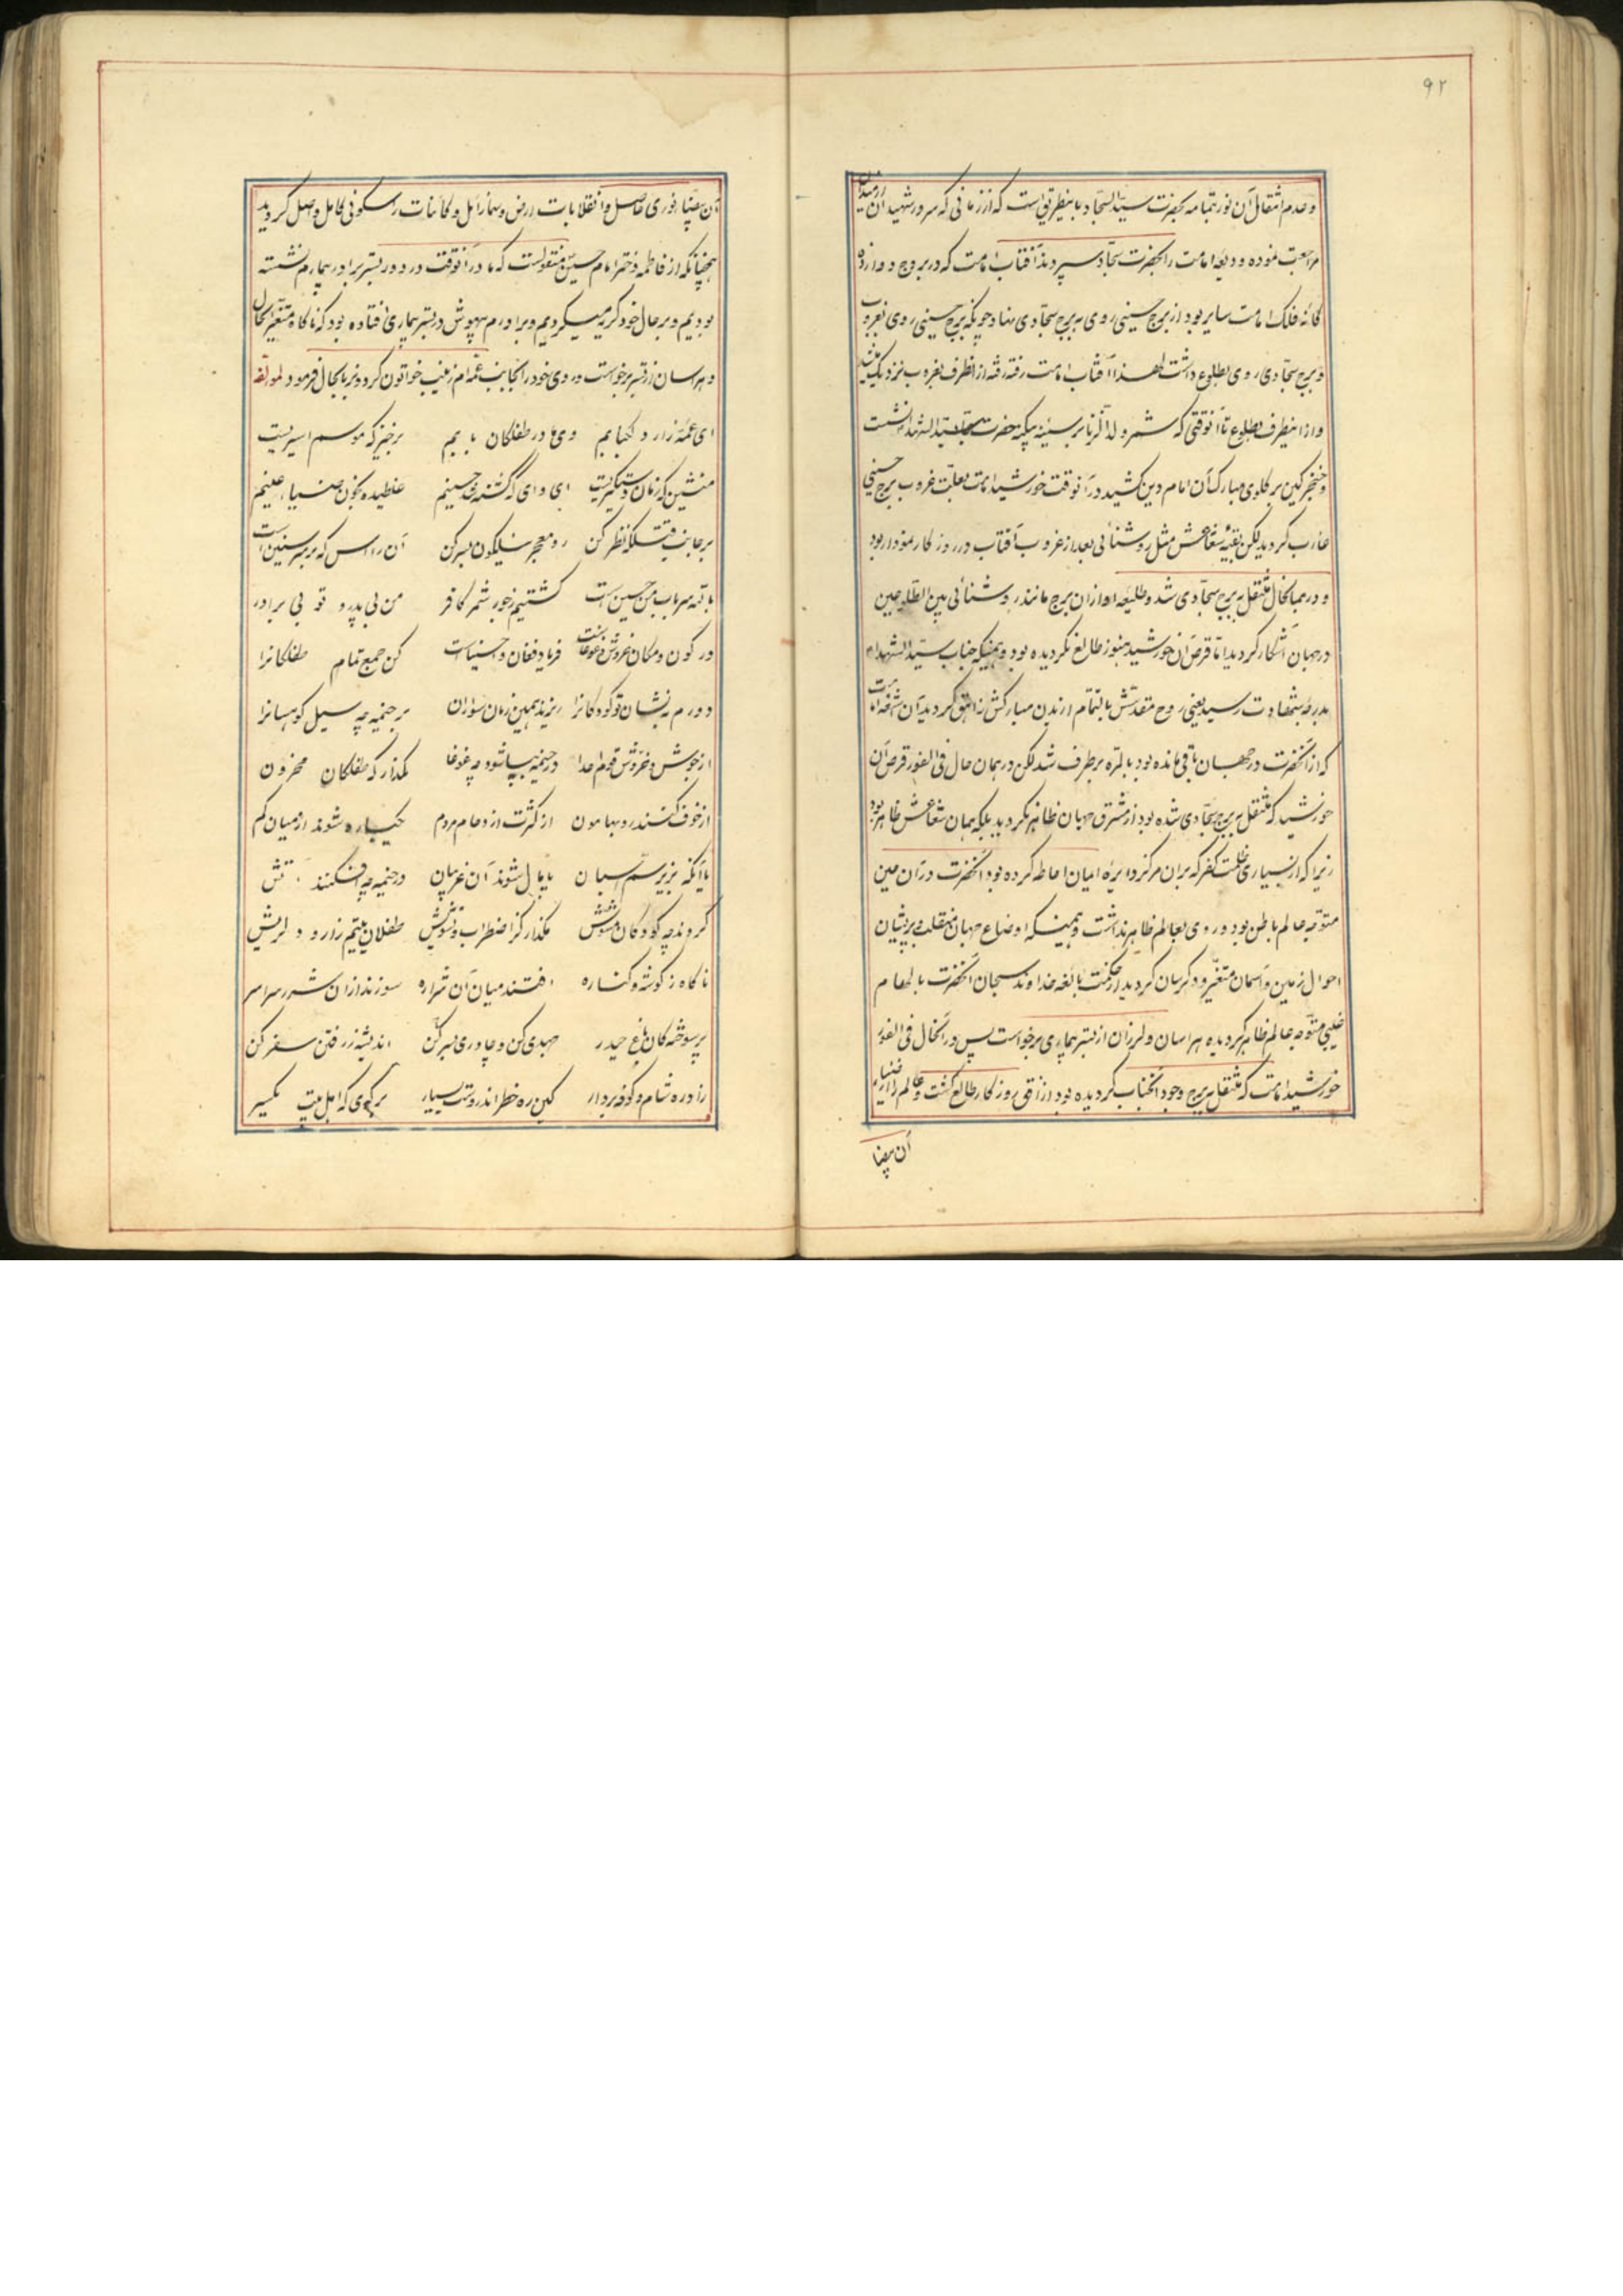 ۹۲
و عدم انتقال آن نور بتمامه بحضرت سید السجاد باینطریق است که از زمانی که سرور شهیدان از میدان
مراجعت نموده و ودیعه امامت را بحضرت سجاد سپردند آفتاب امامت که در بروج دوازده
کانه فلک امامت سایر بود از برج حسینی روی به برج سجادی نهاد چونکه برج حسینی روی بغروب
و برج سجادی روی بطلوع داشت لهذا آفتاب امامت رفته رفته از انطرف بغروب نزدیک میشد
و از اینطرف بطلوع تا آنوقتی که شمر ولد الزنا بر سینه حضرت سید الشهداء نشست
و خنجر کین بر کلوی مبارک آن امام دین کشید در آنوقت خورشید امامت بعلت غروب برج حسینی
غارب کردید لکن بقیه شعاعش مثل روشنائی بعد از غروب آفتاب در روز کار نمودار بود
و در همانحال منتقل به برج سجادی شد و طلیعه او از ان برج مانند روشنائی بین الطلوعین
در جهان آشکار کردید اما قرص آن خورشید هنوز طالع نکردیده بود و همینکه جناب سید الشهداء
بدرجه شهادت رسید یعنی روح مقدسش بالتمام از بدن مبارکش زاهق کردید آن اشعه امامت
که از آنحضرت در جهان باقی مانده بود بالمره برطرف شد لکن در همان حال فی الفور قرص آن
خورشید که منتقل به برج سجادی شده بود از مشرق جهان ظاهر نکردید بلکه همان شعاعش ظاهر بود
زیرا که از بسیاری ظلمت کفر که بران مرکز دایره امیان احاطه کرده بود آنحضرت در آن حین
متوجه عالم باطن بود و روی بعالم ظاهر نداشت و همینکه اوضاع جهان منقلب و پریشان
احوال زمین و آسمان متغیر و دکرسان کردید از حکمت بالغه خداوند سبحان آنحضرت بالهام
غیبی متوجه عالم ظاهر کردیده هراسان و لرزان از بستر بیماری برخواست پس در آنحال فی الفور
خورشید امامت که منتقل به برج وجود آنجناب کردیده بود از افق روز کار طالع کشت و عالم را از ضیاء
آن بیضا
آن بیضا نوری حاصل و انقلابات ارض و سما زایل و کاینات را سکونی کامل واصل کردید
همچنانکه از فاطمه دختر امام حسین منقولست که ما در آنوقت در دور بستر برادر بیمارم نشسته
بودیم و بر حال خود کریه میکردیم و برادرم بیهوش در بستر بیماری افتاده بود که ناکاه متغیر الحال
و هراسان از بستر برخواست و روی خود را بجانب عمه ام زینب خواتون کرد و بزبان حال فرمود لمولفه
ای عمه زار دلکبابم وی مادر طفلکان بابم برخیز که موسم اسیریست
منشین که زمان دستکیریست ای وای که کشته شد حسینم غلطیده بخون ضیاء عینم
بر جانب قتلکه نظر کن رو معجر نیلکون بسر کن آن راس که بر سر سنین است
با تنه سر باب من حسین است کشتیم ز جور شمر کافر من بی پدر و تو بی برادر
در کون و مکان خروش و غوغاست فریاد و فغان وا حسیناست کن جمع تمام طفلکانرا
دورم بنشان تو کودکانرا ریزند همین زمان سواران بر خیمه چه سیل کوهسارانرا
از جوش و خروش قوم اعدا در خیمه بپا شود چه غوغا مکذار که طفلکان محزون
از خوف کنند رو بهامون از کثرت ازدحام مردم یکباره شوند از میان کم
یا آنکه بزیر سم اسبان پایمال شوند آن غریبان در خیمه چه افکنند آتش
کردند چه کودکان مشوش مکذار کز اضطراب و تشویش طفلان یتیم زار و دلریش
ناکاه ز کوشه و کناره افتند میان آن شراره سوزند از ان شرر سراسر
پرسوخته کان باغ حیدر جهدی کن و چادری بسر کن اندیشه ز رفتن سفر کن
زاد ره شام و کوفه بردار کین ره خطر اندر وست بسیار بر کوی که اهل بیت یکسر